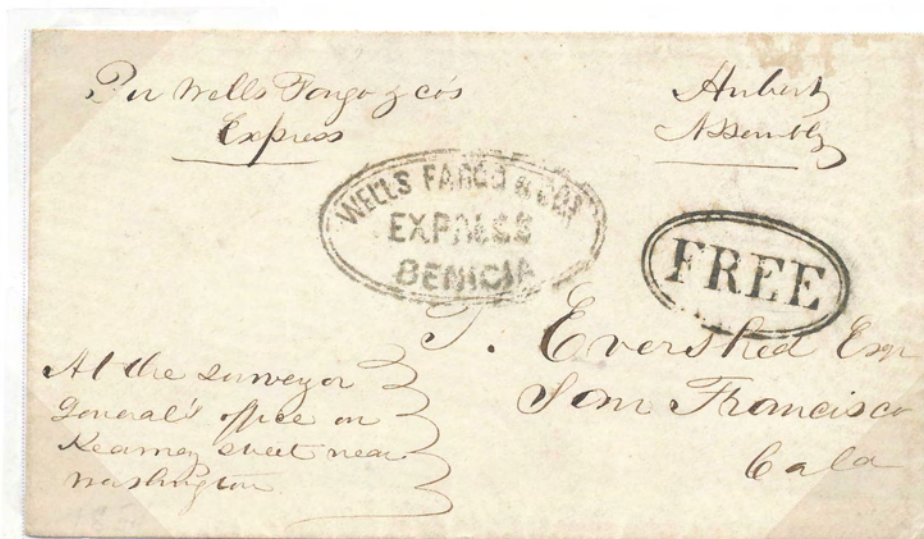 Per Wells Fargo & Co's
Express
Hubert
Assembly
WELLS FARGO & COS
EXPRESS
BENICIA
FREE
T. Evershed Esqr
San Francisco
Cala
At the surveyor
General's office on
Kearney street near
Washington